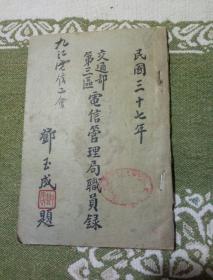 民國三十七年
交通部
第三區
電信管理局職員録
九江電信工會
鄧玉成題